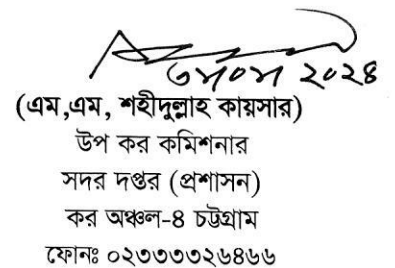 ২০২৪
(এম,এম, শহীদুল্লাহ কায়সার)
উপ কর কমিশনার
সদর দপ্তর (প্রশাসন)
কর অঞ্চল-৪ চট্টগ্রাম
ফোনঃ ০২৩৩৩৩২৬৪৬৬